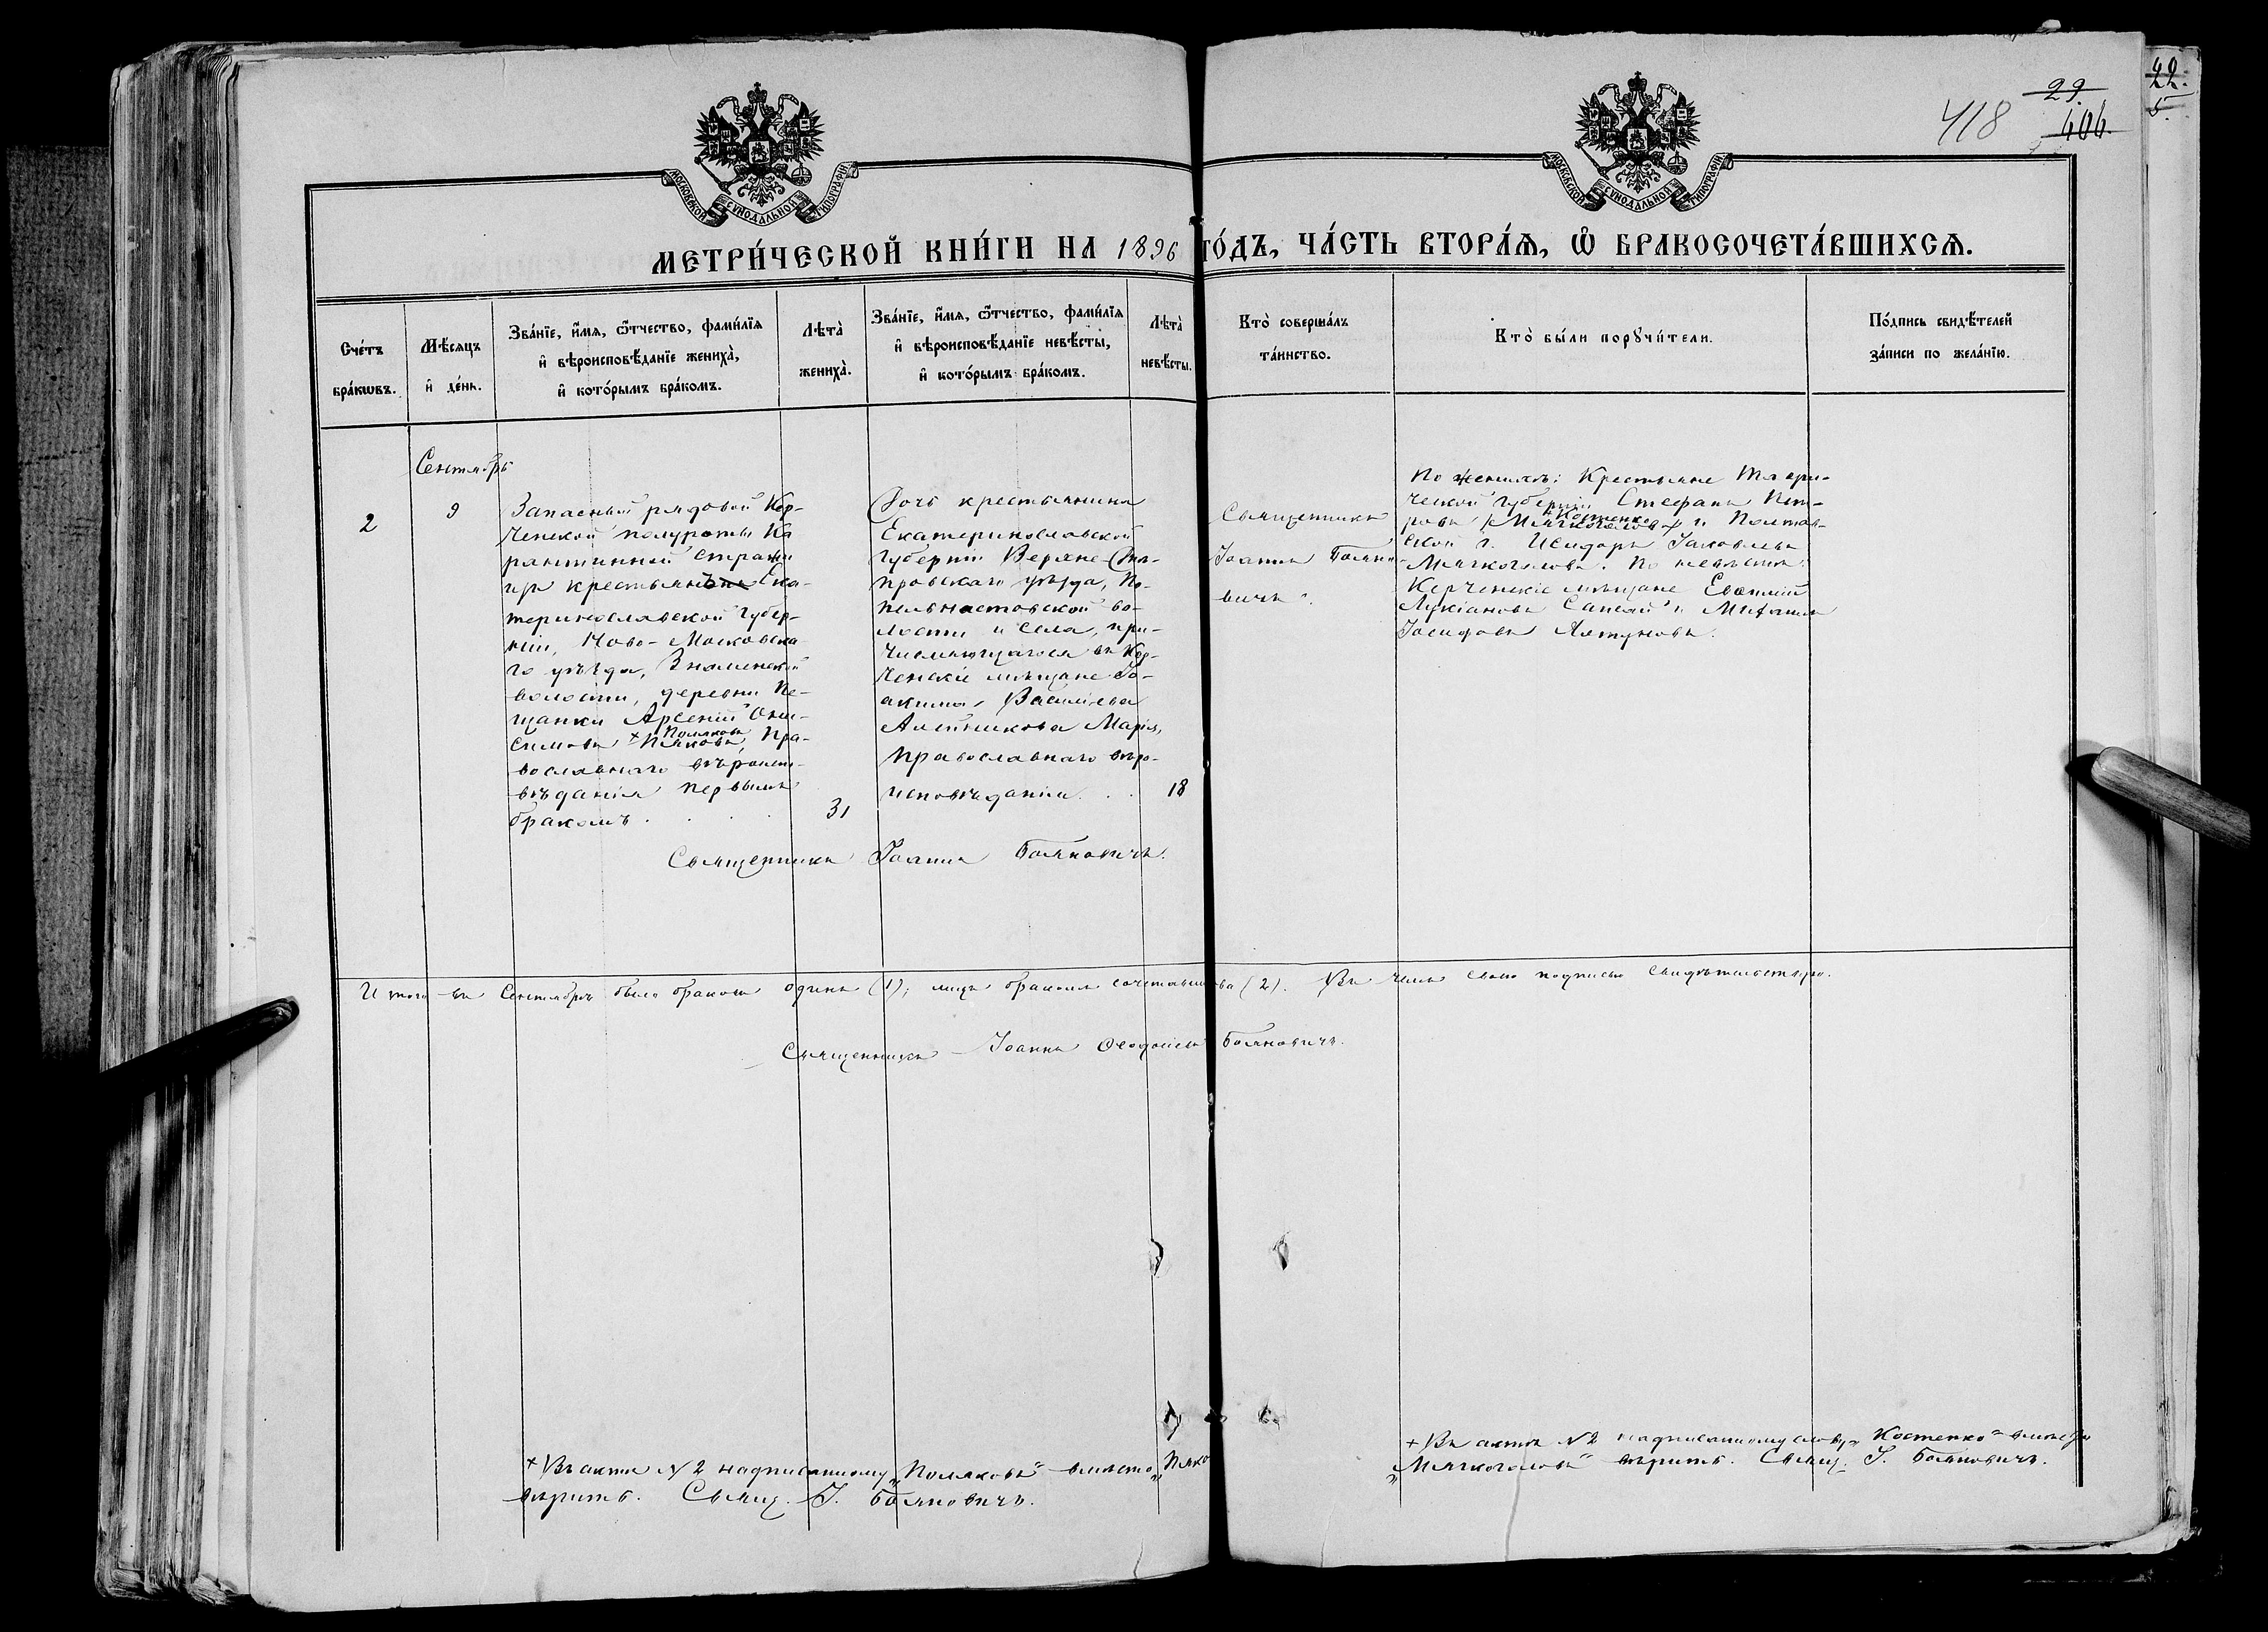 22.
5.
29.
418
406.
МОСКОВСКОЙ СѴНОДАЛЬНОЙ ТИПОГРАФІИ
МОСКОВСКОЙ СѴНОДАЛЬНОЙ ТИПОГРАФІИ
МЕТРИ́ЧЕСКОЙ КНИ́ГИ НА 1896 ГО́ДЪ, ЧА́СТЬ ВТОРА́Ѧ, Ѽ БРАКОСОЧЕТА́ВШИХСѦ.
Сче́тъ
бра́кѡвъ.
Мѣ́сяцъ
и҆ де́нь.
Зва́нїе, и҆́мя, ѻ҆́тчество, фами́лїя
и҆ вѣроисповѣ́данїе жениха̀,
и҆ кото́рымъ бра́комъ.
Лѣта̀
жениха̀.
Зва́нїе, и҆́мя, ѻ҆́тчество, фами́лїя
и҆ вѣроисповѣ́данїе невѣ́сты,
и҆ кото́рымъ бра́комъ.
Лѣта̀
невѣ́сты.
Кто̀ соверша́лъ
та́инство.
Кто̀ бы́ли порꙋчи́тели.
По́дпись свидѣ́телей
за́писи по жела́нїю.
2
Сентябрь
9
Запасный рядовой Кер-
ченской полуроты Ка
рантинной стражи
изъ крестьянъ Ека-
теринославской губер-
ніи, Ново-Московска-
го уѣзда, Знаменской
волости, деревни Пе-
щанки Арсеній Они-
симовъ + Поляковъ Пяковъ, пра-
вославнаго вѣроиспо-
вѣданія первымъ
бракомъ . . . .
31
Дочь крестьянина
Екатеринославской
губерніи Верхне-Днѣ-
провскаго уѣзда, По-
пельнастовской во-
лости и села, при-
числяющагося въ Кер-
ченскіе мѣщане Іо-
акима Васильева
Алейникова Марія,
православнаго вѣро-
исповѣданія . .
18
Священникъ
Іоаннъ Боянo-
вичъ.
По женихѣ: Крестьяне Таври-
ческой губерніи Стефанъ Пет-
ровъ + Костенко Мягкоголовъ + и Полтав-
ской г. Исидоръ Іаковлевъ
Мягкоголовъ. По невѣстѣ:
Керченскіе мѣщане Евѳимій
Лукіановъ и
Іосифовъ
Священникъ Іоаннъ Бояновичъ.
Итого въ Сентябрѣ было браковъ одинъ (1); лицъ бракомъ сочетавшихся (2). Въ чемъ своею подписью свидѣтельствую.
Священникъ Іоаннъ Ѳеодосіевъ Бояновичъ.
+ Въ актѣ № 2 надписанному „Поляковъ" вмѣсто „Пяко
вѣрить. Свящ. І. Бояновичъ.
+ Въ актѣ № 2 надписанному слову „Костенко" вмѣсто
„Мягкоголовъ" вѣрить. Свящ. І. Бояновичъ.